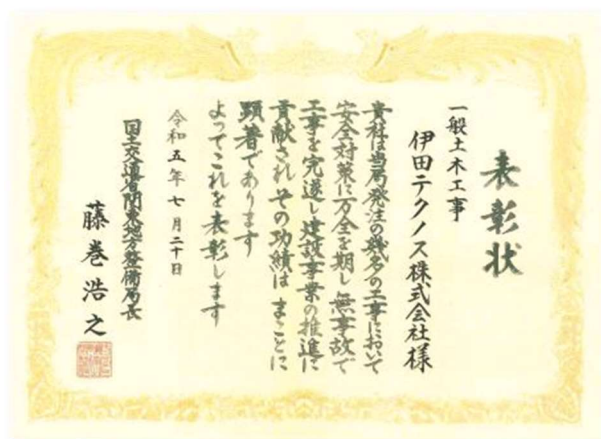 表彰状
一般土木工事
伊田テクノス株式会社様
貴社は当局発注の幾多の工事において
安全対策に万全を期し無事故で
工事を完遂し建設事業の推進に
貢献されその功績はまことに
顕著であります
よってこれを表彰します
令和五年七月二十日
国土交通省関東地方整備局長
藤巻浩之